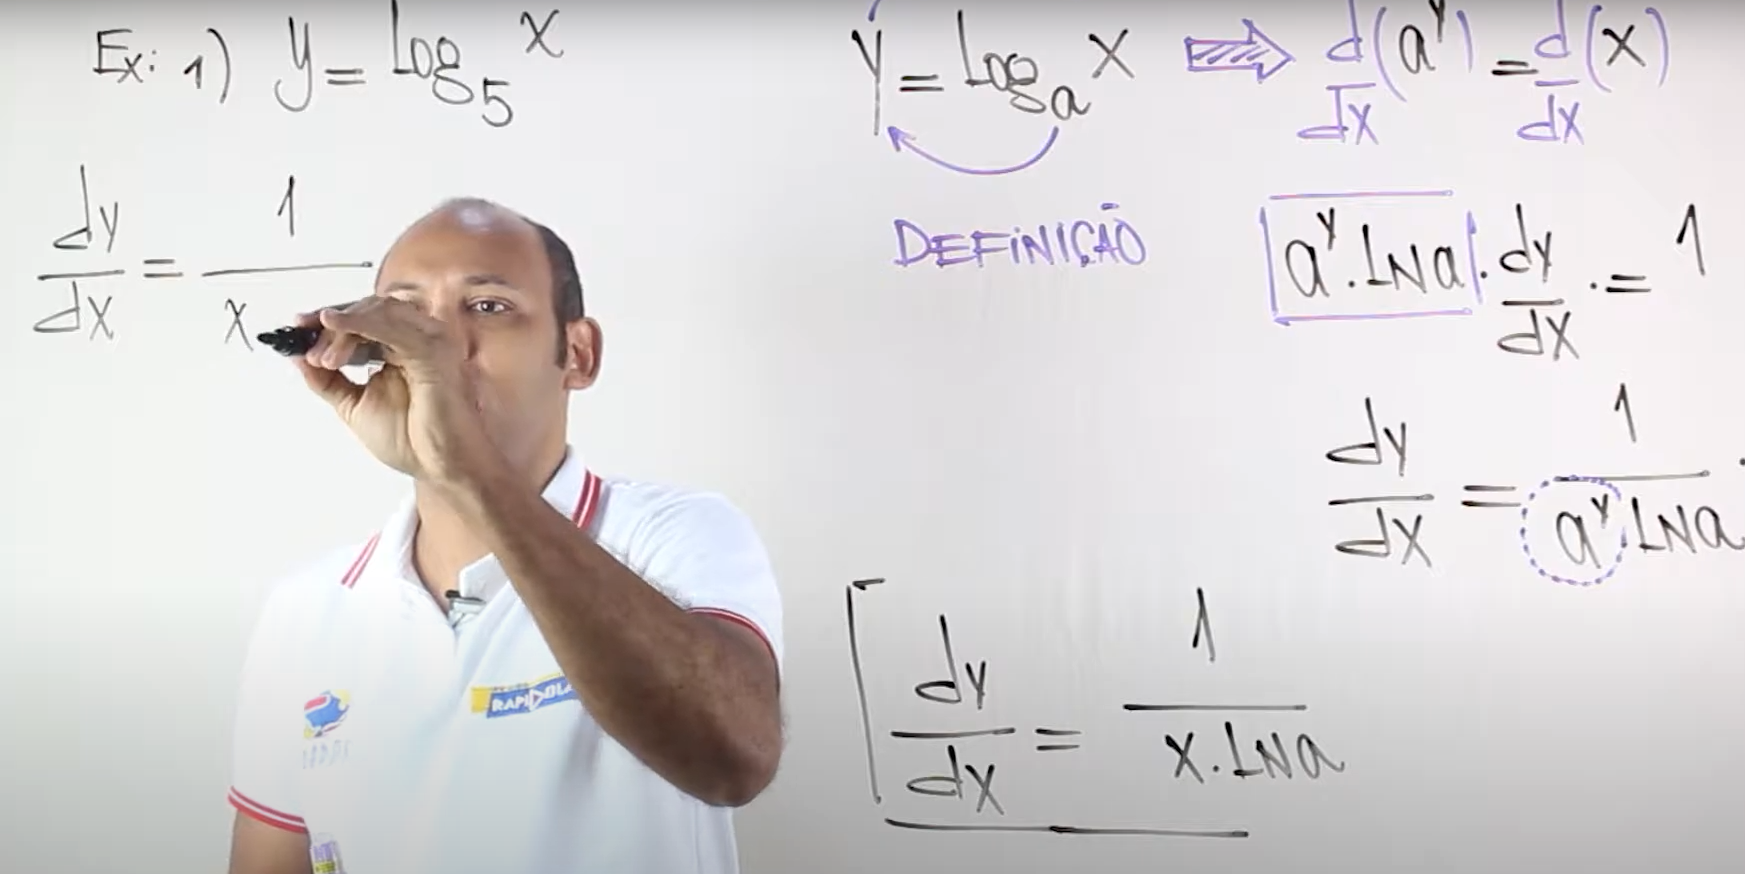 Ex: 1) y = Log₅ x
dy/dx = 1/x
y = Log_a x ⇒ d/dx (a^y) = d/dx (x)
DEFINIÇÃO
a^y . LNa . dy/dx . = 1
dy/dx = 1/(a^y . LNa)
dy/dx = 1/(x . LNa)